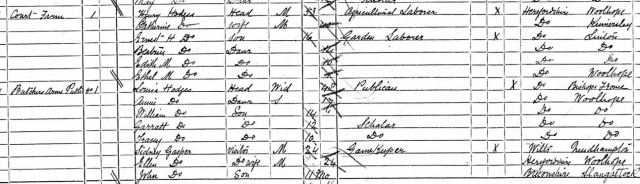 May Do Daur
Court Farm 1 Henry Hodges Head M 43 Agricultural Laborer X Herefordshire Woolhope
Catherine Do wife M Do Kinnersley
Ernest H Do Son 16 Garden Laborer X Do Luston
Beatrice Do Daur Do Do
Edith M Do Do Do Do
Ethel M Do Do Do Woolhope
Butchers Arms 1 Louisa Hodges Head Wid 43 Publican X Do Bishops Frome
Annie Do Daur S 17 Do Woolhope
William Do Son 14 Do Do
Garratt Do Do 12 Scholar Do Do
Tracey Do Do 10 Do Do Do
Sidney Gasper Visitor M 24 Gamekeeper X Wilts
Ellen Do Do wife M 24 Herefordshire Woolhope
John Do Son 11 mo Breconshire Llangattock